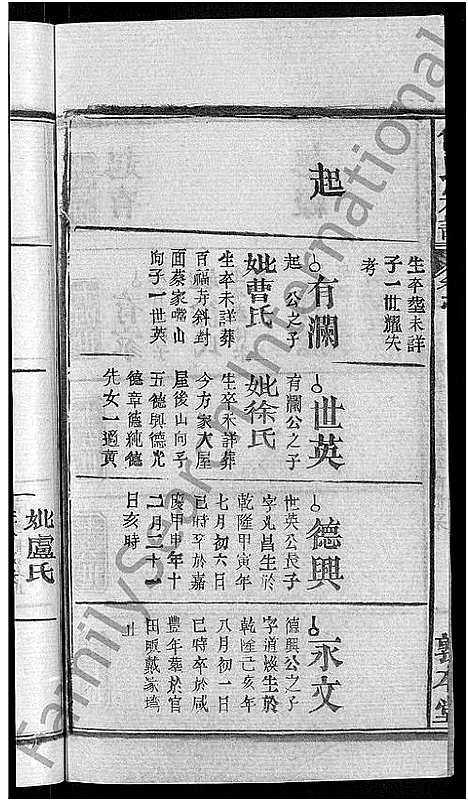 起
生卒塋未詳
子一世耀失
考
有瀾
起公之子
妣曹氏
生卒未詳葬
百福寺斜對
面蔡家嘴山
向子一世英
世英
有瀾公之子
妣徐氏
生卒未詳葬
今方家大屋
屋後山向子
五德興德光
德章德純德
先女一適黃
德興
世英公長子
字光昌生於
乾隆甲寅年
七月初六日
巳時卒於嘉
慶甲申年十
二月二十一
日亥時
永文
德興公之子
字道煥生於
乾隆己亥年
八月初一日
巳時卒於咸
豐年葬於官
田畈戴家塆
止
敦本堂
妣盧氏
FamilySearch International